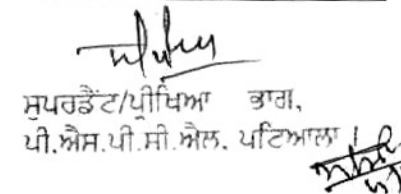 ਸੁਪਰਡੈਂਟ/ਪ੍ਰੀਖਿਆ ਭਾਗ,
ਪੀ.ਐਸ.ਪੀ.ਸੀ.ਐਲ. ਪਟਿਆਲਾ।